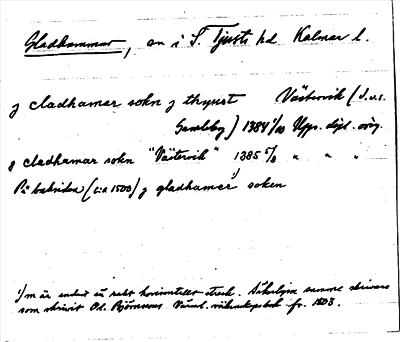 Gladhammar, sn i S. Tjusts hd Kalmar l.
j cladhamar sokn j thyust Västervik (d.v.s.
Gamleby) 1384 1/10 Upps. dipl. orig.
j cladhamar sokn "Västervik" 1385 5/8 " " "
På baksidan (c:a 1500) j gladhamer¹⁾ soken
¹⁾ m är endast ett rakt horisontellt streck. Säkerligen samme skrivare
som skrivit Ol. Björnssons Värml. räkenskapsbok fr. 1503.